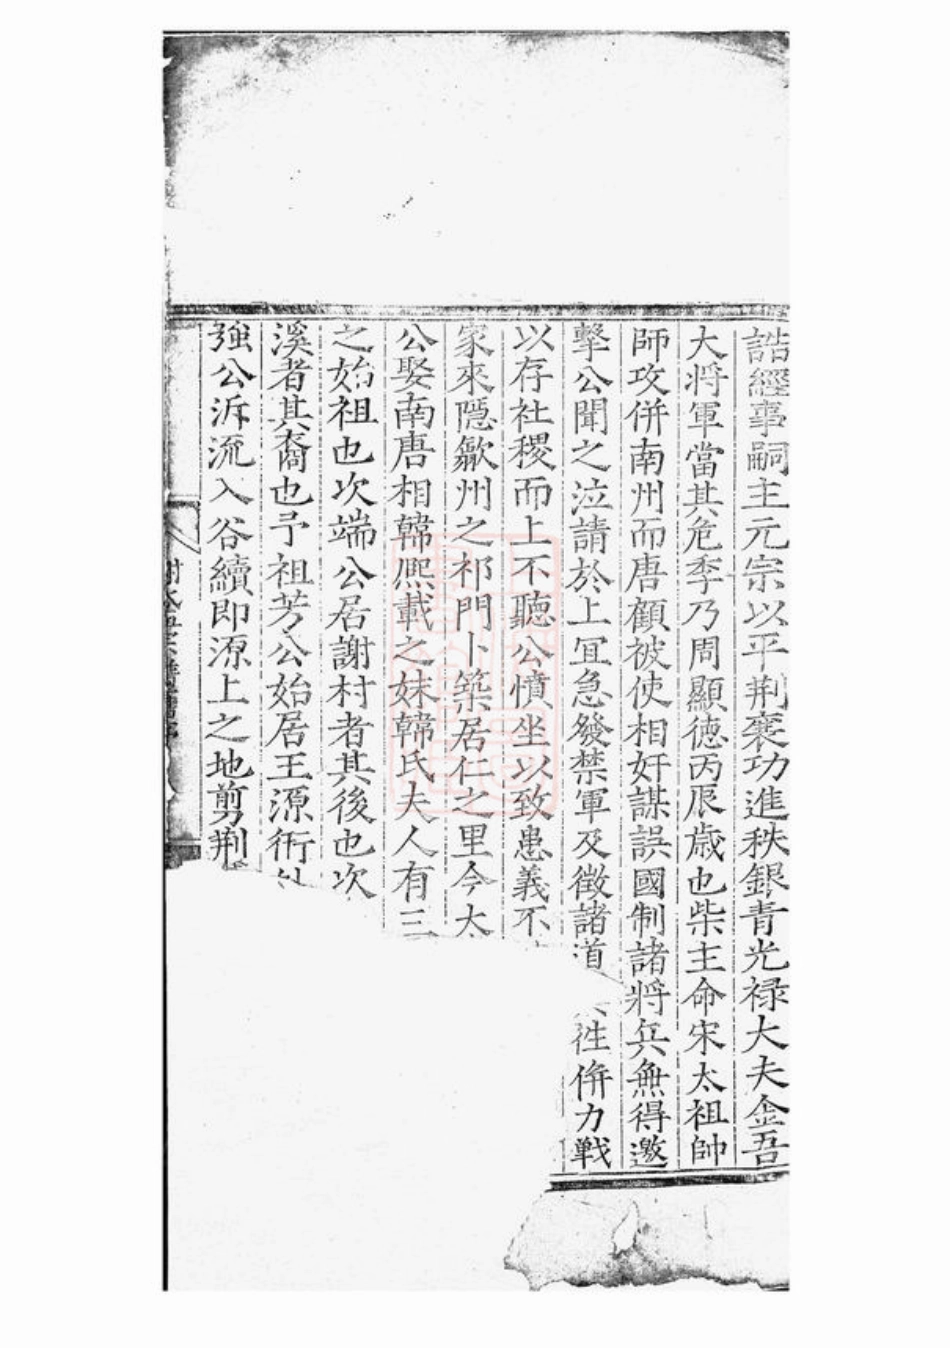 誥經事嗣主元宗以平荆襄功進秩銀青光禄大夫金吾
大將軍當其危季乃周顯徳丙辰歳也柴主命宋太祖帥
師攻併南州而唐顧被使相奸謀誤國制諸將兵無得邀
擊公聞之泣請於上冝急發禁軍及徴諸道徃併力戦
以存社稷而上不聽公憤坐以致患義不
家來隱歙州之祁門卜築居仁之里今太
公娶南唐相韓熈載之妹韓氏夫人有三
之始祖也次端公居謝村者其後也次
溪者其裔也予祖芳公始居王源術
強公泝流入谷續即源上之地剪荆